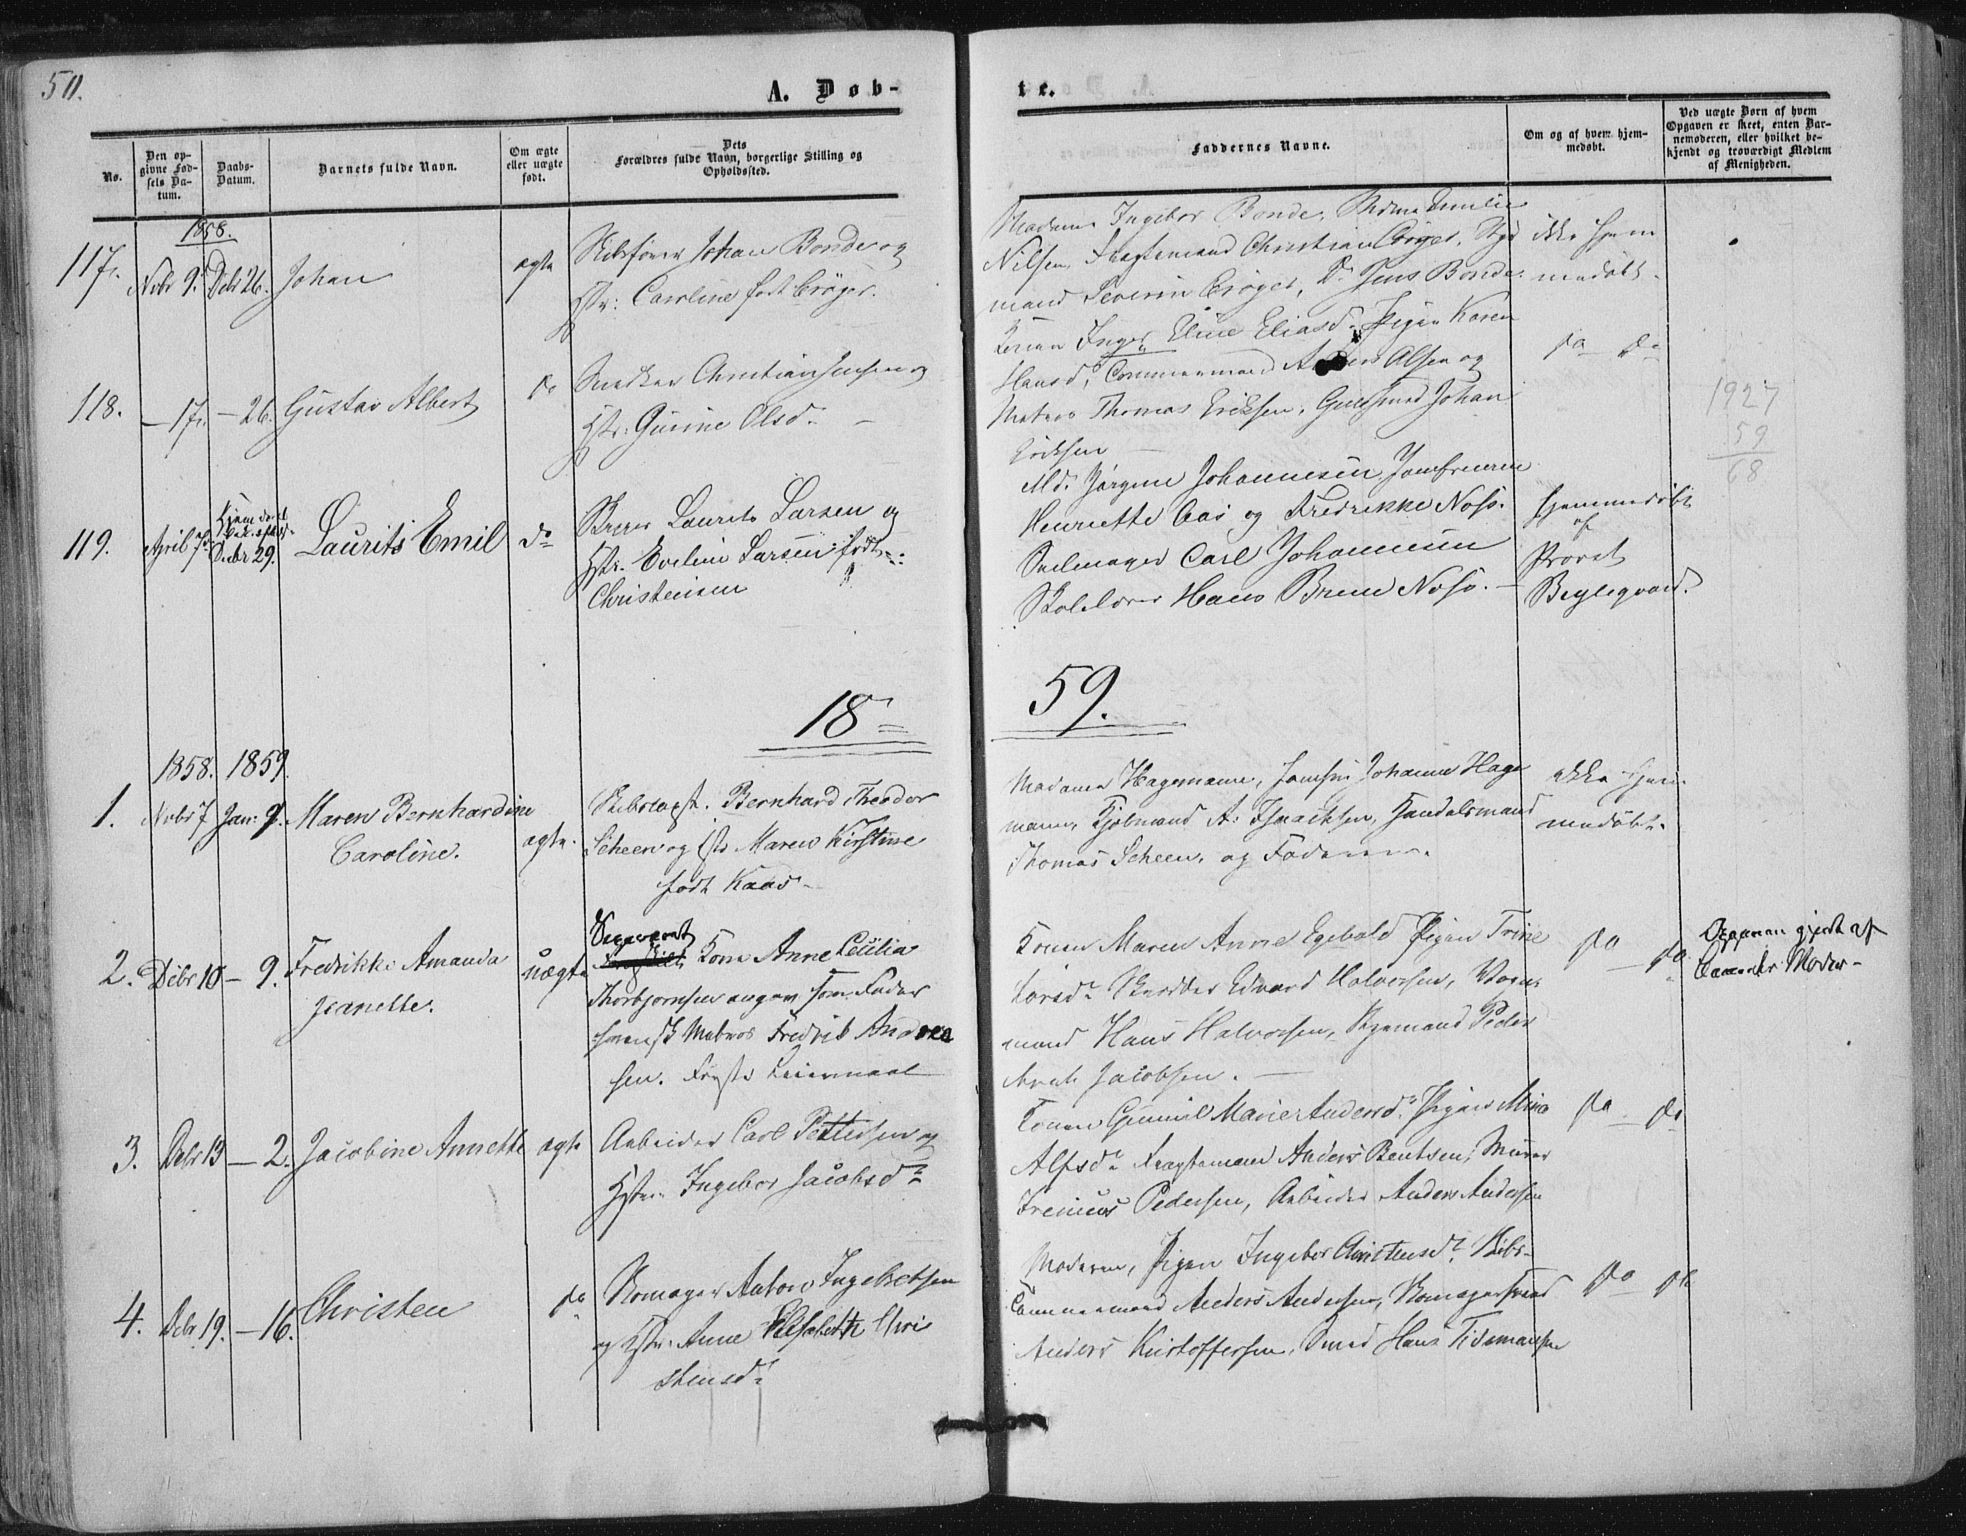 50.
A. Døb-
te.
No.
Den op-
givne Fød-
sels Da-
tum.
Daabs-
Datum.
Barnets fulde Navn.
Om ægte
eller uægte
født.
Dets
Forældres fulde Navn, borgerlige Stilling og
Opholdssted.
Faddernes Navne.
Om og af hvem hjem-
medøbt.
Ved uægte Børn af hvem
Opgaven er skeet, enten Bar-
nemoderen, eller hvilket be-
kjendt og troværdigt Medlem
af Menigheden.
1858.
117.
Nvbr 9.
Debr 26.
Johan
ægte
Skibsfører Johan Bonde og
Hstr: Caroline født Crøger.
Madame Ingebor Bonde, Emilie
Nilsen, Fragtemand Christian Crøger, Styr
mand Severin Crøger, Do Jens Bonde.
ikke hjem
medøbt.
118.
- 17.
- 26.
Gustav Albert
do
Snedker Christian Jensen og
Hstr: Gurine Olsd.
Konen Inger Eline Eliasd. Pigen Karen
Hansd. Tømmermand Anders Olsen og
Matros Thomas Eriksen, Johan
Eriksen
do - do
1927
59
68
119.
April 7
Hjem døbt
Debr 29.
Laurits Emil
do
Laurits Larsen og
Hstr. Eveline Larsen født
Christensen
Md. Jørgine Johannesen, Jomfruerne
Henriette Aas og Fredrikke Nosø.
Seilmager Carl Johannesen
Skolelærer Hans Brun Nosø.
hjemmedøbt
af
Provst
Bugtegvard.
18
59.
1858. 1859.
1.
Nvbr 7
Jan: 9.
Maren Bernhardine
Caroline.
ægte.
Skibscapt. Bernhard Theodor
Scheen og Hstr Maren Kirstine
født Kaas
Madame Hagemann, Jomfru Johanne Hage
mann, Kjøbmand A. Isaachsen, Handelsmand
Thomas Scheen, og Faderen.
ikke hjem
medøbt.
2.
Debr 10
- 9.
Fredrikke Amanda
Jeanette.
uægte
Separeret
Kone Anne Cecilia
Thorbjørnsen angav som Fader
svensk Matros Fredrik Andrea
sen. Første Leiermaal
Konen Maren Anne Egebald Pigen Trine
Larsd. Skrædder Edvard Halvorsen, Vogn
mand Hans Halvorsen, Styrmand Peder
Jacobsen.
do - do
Opgaven gjort af
Barnets Moder
3.
Debr 13
- 2.
Jacobine Annette
ægte
Arbeider Carl Pettersen og
Hstr. Ingebor Jacobsd.
Konen Gunnil Marie Andersd. Pigen Mina
Alfsd. Fragtemand Anders Bentsen, Murer
Irenius Pedersen, Arbeider Anders Andersen
do - do
4.
Debr 19.
- 16.
Christen
do
Skomager Anton Ingebretsen
og Hstr. Anne Elisabeth Chri
stensd.
Moderen, Pigen Ingebor Christensd. Skibs-
tømmermand Anders Andersen, Skomagersvend
Anders Kristoffersen, Smed Hans Tidemansen
do do